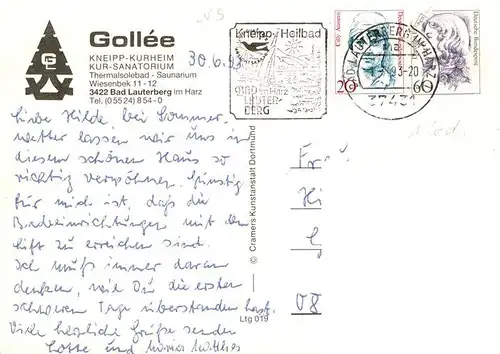 Gollée
KNEIPP-KURHEIM
KUR-SANATORIUM
Thermalsolebad - Saunarium
Wiesenbek 11 - 12
3422 Bad Lauterberg im Harz
Tel. (05524) 854-0
30.6.93
Kneipp-Heilbad
BAD im Harz
LAUTER-
BERG
37431
20
60
Deutsche Bundespost
Liebe Hilde bei Sommer-
wetter lassen wir uns in
diesem schönen Haus so
richtig verwöhnen. Günstig
für mich ist, daß die
Badeeinrichtungen mit dem
Lift zu erreichen sind.
Ich muß immer daran
denken, wie Du die ersten
schweren Tage überstanden hast.
Viele herzliche Grüße senden
Lotte und
© Cramers Kunstanstalt Dortmund
Ltg 019
Fr
Hi